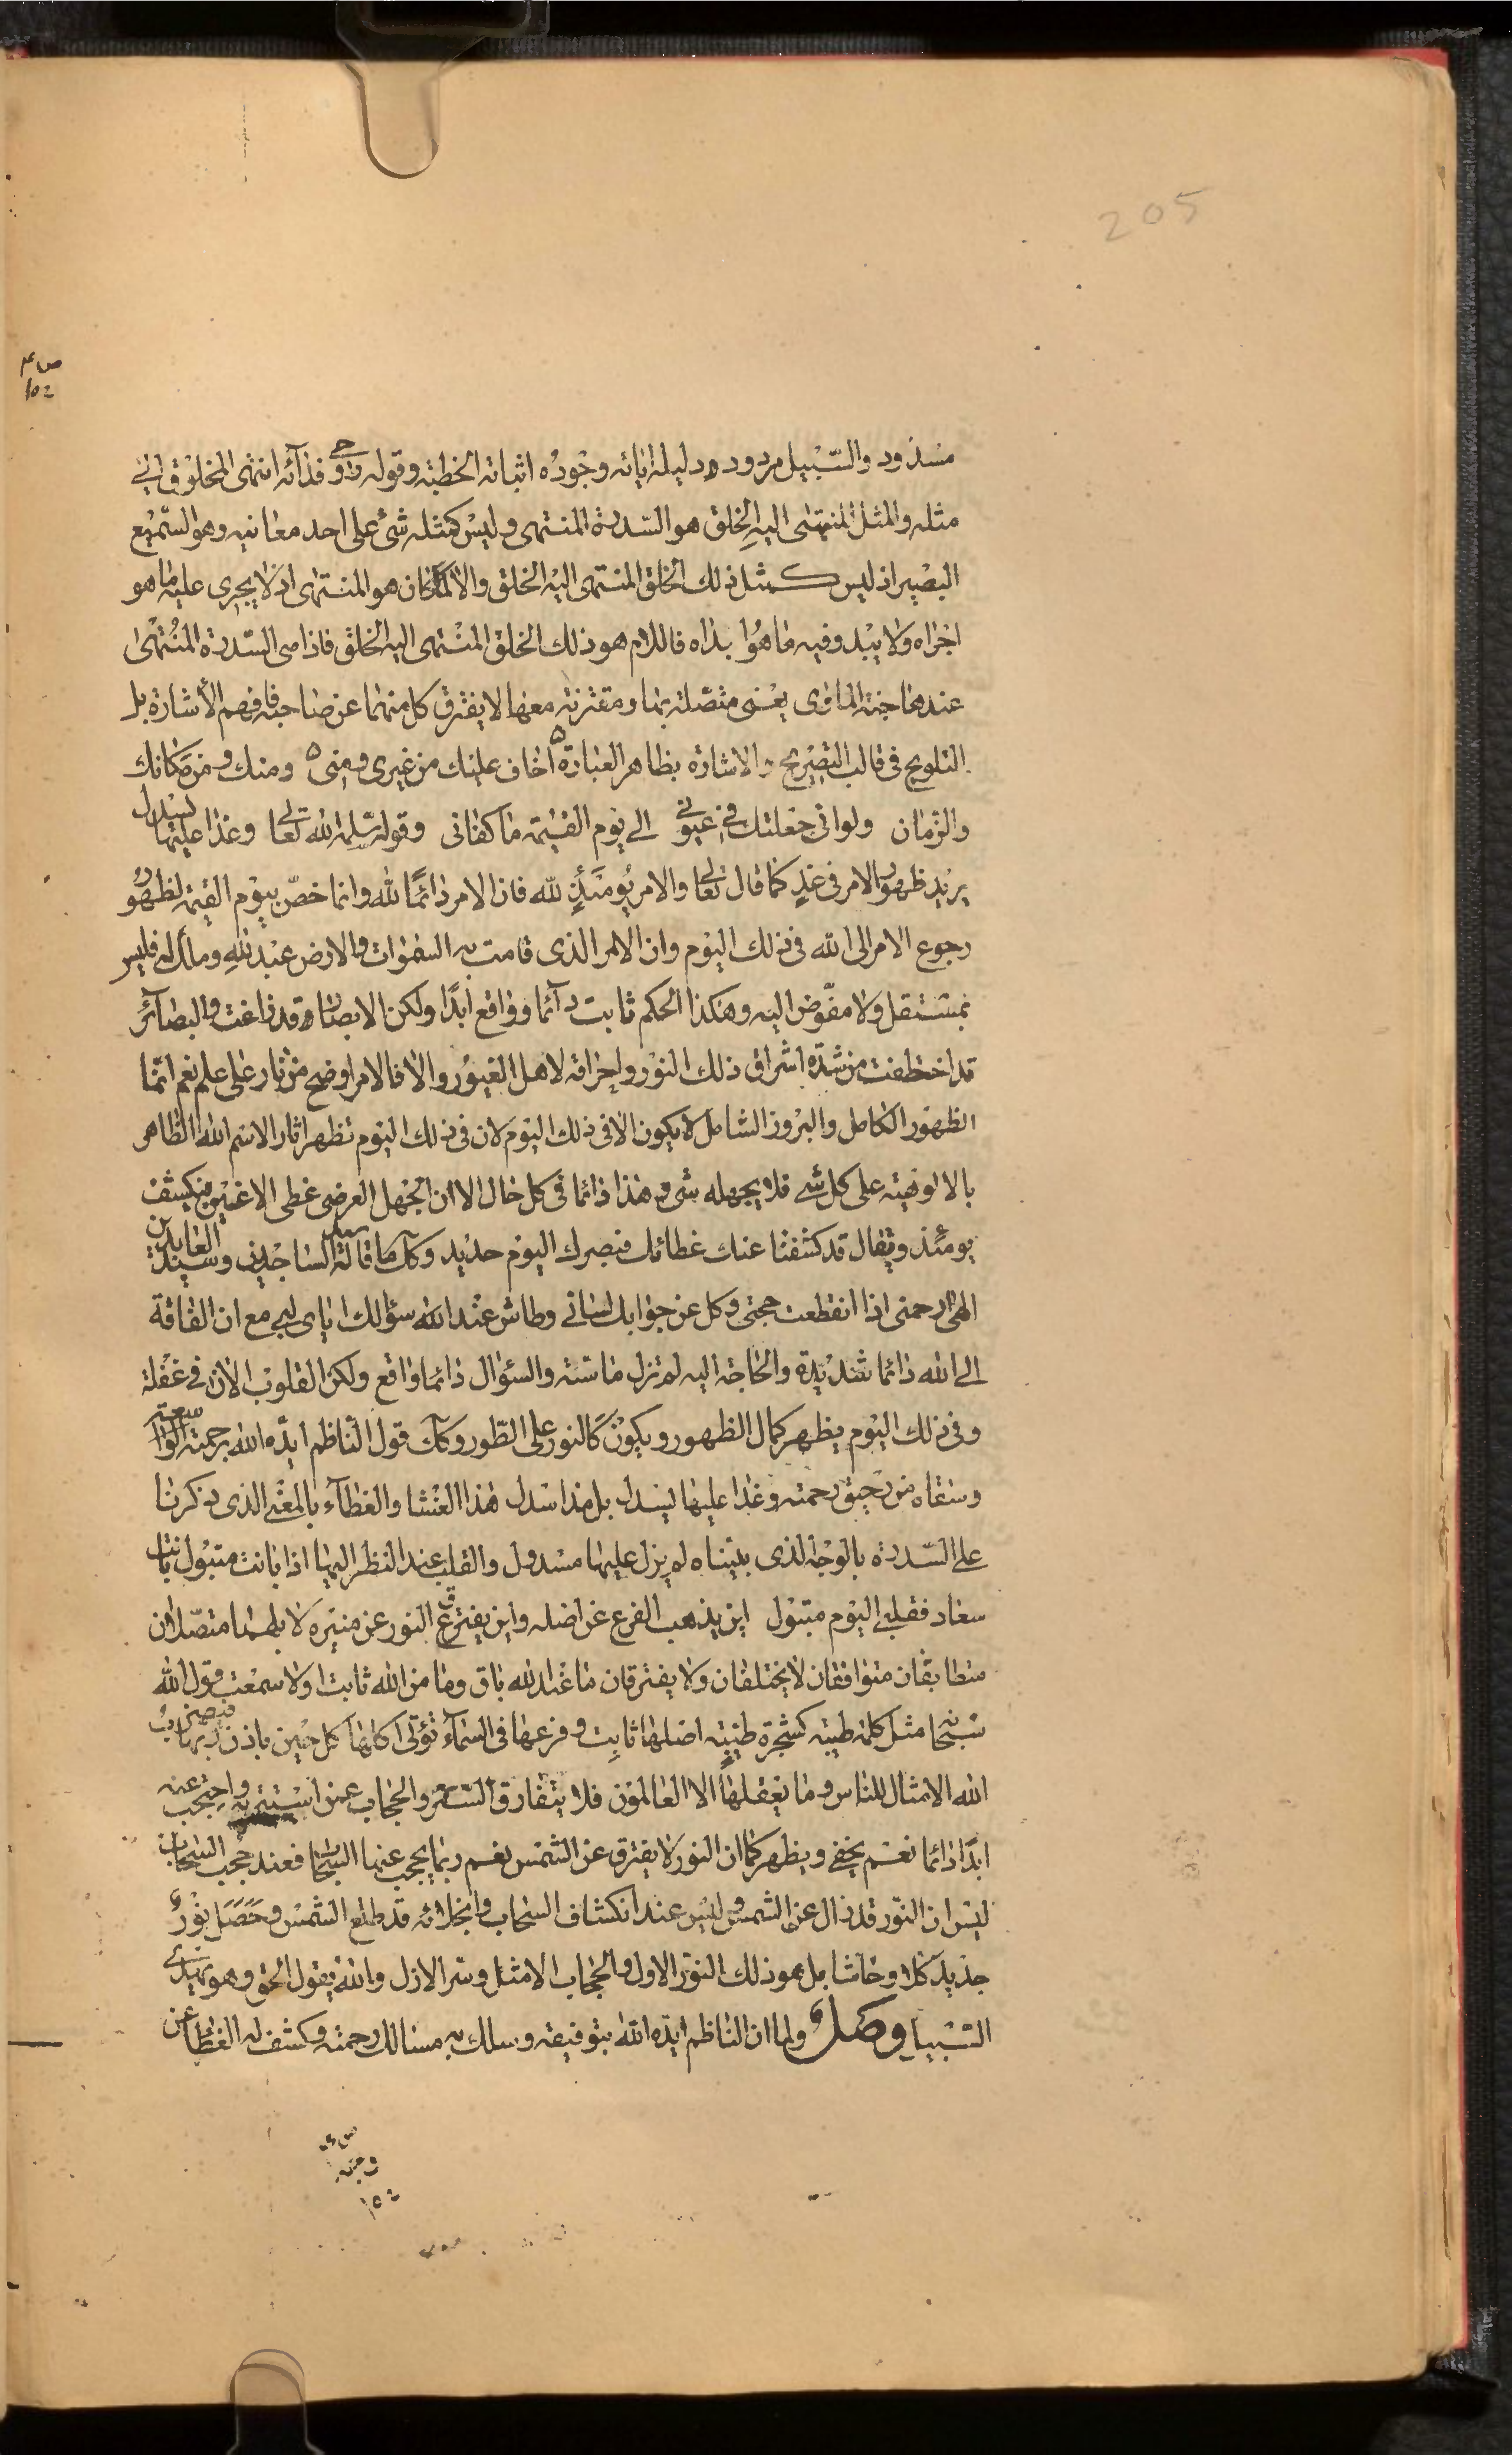 205
مسدود والسّبيل مردود دليله اياته وجوده اثباته الخطبة وقوله روحى فدائه انتهى المخلوق الى
مثله والمثل المنتهى اليه الخلق هو السّدرة المنتهى وليس كمثله شئ على احد معانيه وهو السّميع
البصير اذ ليس كمثل ذلك الخلق المنتهى اليه الخلق والا لما كان هو المنتهى اذ لا يجرى عليه ما هو
اجراه ولا يبدو فيه ما هو ابداه فاللام هو ذلك الخلق المنتهى اليه الخلق فاذا هى السّدرة المنتهى
عندها جنة الماوى يعنى متصّلة بها ومقترنة معها لا يفترق كل منهما عن صاحبه فافهم الأشارة بل
التلويح فى قالب التصريح والاشارة بظاهر العبارة ه اخاف عليك من غيرى ومنى ه ومنك ومن مكانك
والزمان ولو انى جعلتك فى عيونى الى يوم القيمة ما كفانى وقوله سلمه الله تعالى وغدا عليها يسدل
يريد ظهور الامر فى غد كما قال تعالى والامر يومئذٍ لله فان الامر دائمًا لله وانما خصّ بيوم القيمة لظهور
رجوع الامر الى الله فى ذلك اليوم وان الامر الذى قامت به السموات والارض عبد لله ومالك له فليس
بمستقل ولا مفّوض اليه وهكذا الحكم ثابت دآئما وواقع ابدًا ولكن الابصار قد زاغت والبصآئر
قد اختطفت من شدّة اشراق ذلك النور واحراقه لاهل الغيور والا فالامر اوضح من نار على علم نعم انما
الظهور الكامل والبروز الشامل لا يكون الا فى ذلك اليوم لان فى ذلك اليوم تظهر اثار الاسم الله الظاهر
بالالوهية على كل شئ فلا يجهله شئ وهذا دائما فى كل حال الا ان الجهل العرضى غطى الاعين فينكشف
يومئذ ويقال قد كشفنا عنك غطائك فبصرك اليوم حديد وكك ما قاله سيد الساجدين وسند العابدين
الهى ارحمنى اذا انقطعت حجتى وكل عن جوابك لسانى وطاش عند الله سؤالك اياى لبى مع ان الفاقة
الى الله دائما شديدة والحاجة اليه لم تزل ماسّة والسئوال دائما واقع ولكن القلوب الان فى غفلة
وفى ذلك اليوم يظهر كمال الظهور ويكون كالنور على الطور وكك قول الناظم ايدّه الله برحمته الواسعة
وسقاه من رحيق رحمته وغدا عليها يسدل بل هذا سدل هذا الغشا والغطآء بالمعنى الذى ذكرنا
على السّدرة بالوجه الذى بيّناه لم يزل عليها مسدول والقلب عند النظر اليها اذا بانت متبول بانت
سعاد فقلبى اليوم متبول اين يذهب الفرع عن اصله واين يفترق النور عن منيره لا بل هما متصّلان
متطابقان متوافقان لا يختلفان ولا يفترقان ما عند الله باق وما من الله ثابت اولا سمعت قول الله
سبحانه مثل كلمة طيبة كشجرة طيّبة اصلها ثابت وفرعها فى السمآء تؤتى اكلها كل حين باذن ربها فيضرب
الله الامثال للناس وما يعقلها الا العالمون فلا يتفارق الستر والحجاب عمن استتر به واحتجب عنه
ابدًا دائما نعم يخفى ويظهر كما ان النور لا يفترق عن الشمس نعم ربما يحجب عنها السحاب فعند حجب السحاب
ليس ان النّور قد زال عن الشمس وليس عند انكشاف السحاب وانجلائه قد طلع الشمس وحَصَل نورٌ
جديد كلا وحاشا بل هو ذلك النور الاول والحجاب الامثل وسر الازل والله يقول الحق وهو يهدى
السّبيل وصل ولما ان الناظم ايدّه الله بتوفيقه وسلك به مسالك رحمته وكشف له الغطا عن